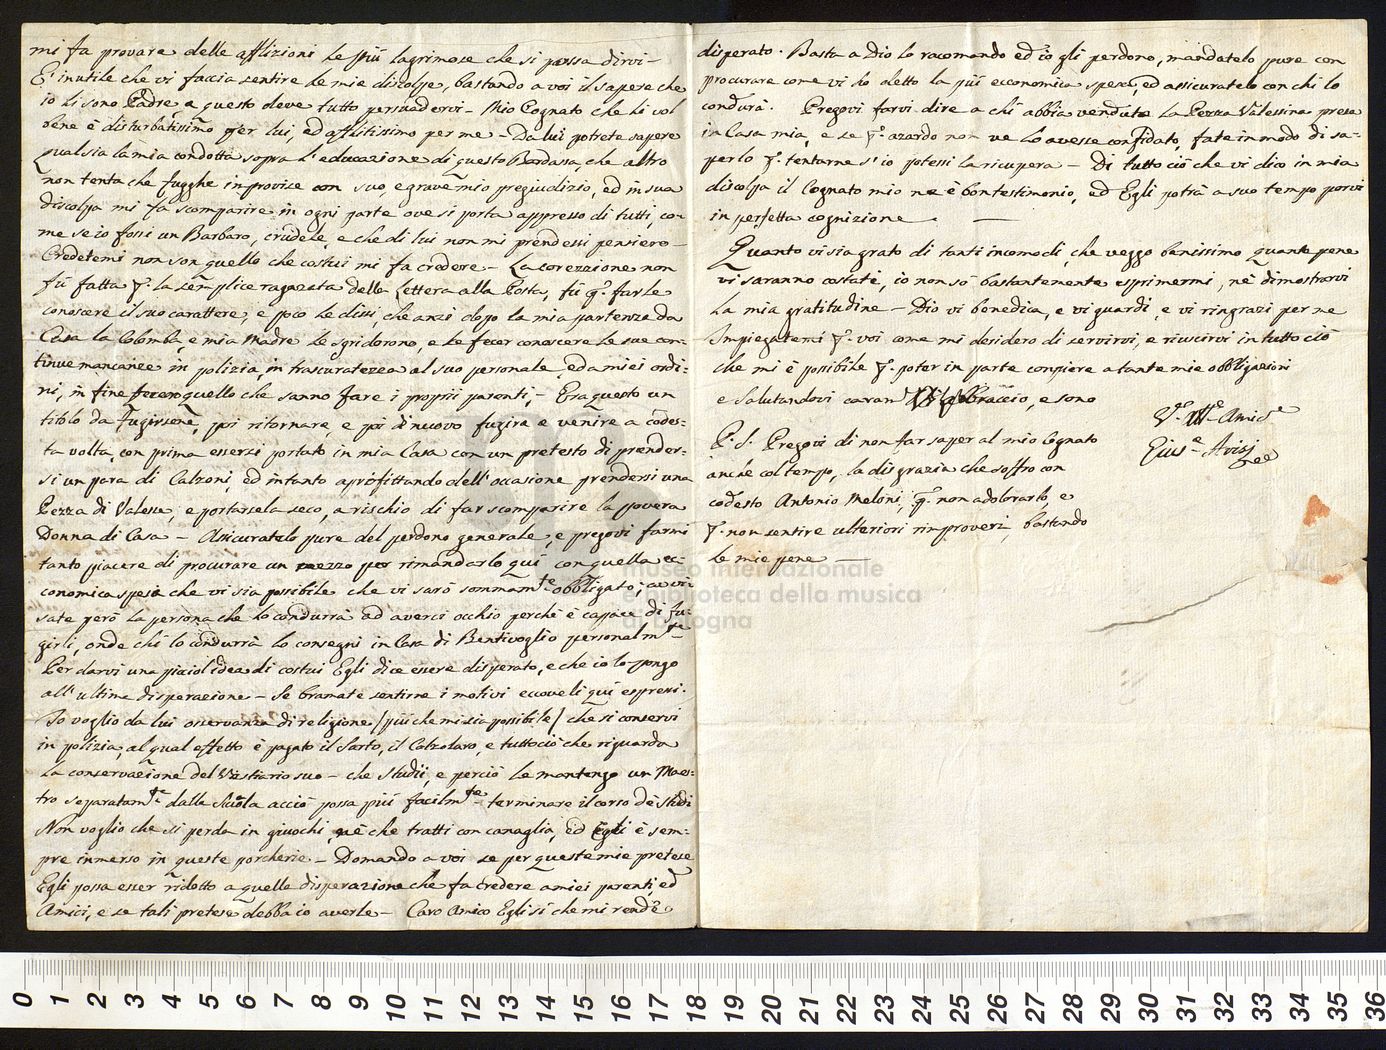 mi fa provare delle afflizioni le più lagrimose che si possa dirvi -
E' inutile che vi faccia sentire le mie discolpe, bastando a voi il sapere che
io li sono Padre, e questo deve tutto persuadervi - Mio Cognato che li vol
bene è disturbatissimo per lui, ed afflitissimo per me - Da lui potrete sapere
qual sia la mia condotta sopra l'educazione di questo Bardassa, che altro
non tenta che fugghe improvise con suo, e grave mio pregiudizio, ed in sua
discolpa mi fa scomparire in ogni parte ove si porta appresso di tutti, co-
me se io fossi un Barbaro, crudele, e che di lui non mi prendessi pensiero -
Credetemi non son quello che costui mi fa credere - La corezzione non
fù fatta p. la semplice ragazata della Lettera alla Posta, fù p. farle
conoscere il suo carattere, e poco le dissi, che anzi dopo la mia partenza da
Casa la Colomba, e mia Madre le sgridorono, e le fecer conoscere le sue con-
tinue mancanze in polizia, in trascuratezza al suo personale, ed a miei ordi-
ni, in fine fecero quello che sanno fare i proprii parenti - Era questo un
titolo da fugirsene, poi ritornare, e poi di nuovo fugire e venire a codes-
ta volta, con prima essersi portato in mia Casa con un pretesto di prender-
si un para di Calzoni, ed intanto aprofittando dell'occasione prendersi una
Pezza di Valess., e portarsela seco, a rischio di far scomparire la povera
Donna di Casa - Asicuratelo pure del perdono generale, e pregovi farmi
tanto piacere di procurare un mezzo per rimandarlo quì con quella ec-
conomica spesa che vi sia possibile che vi sarò sommam.te obbligato; avvi-
sate però la persona che lo condurrà ad averci occhio perchè è capace di fu-
girli, onde chi lo condurrà lo consegni in Casa di Bentivoglio personalm.te
Per darvi una picciol'idea di costui Egli dice essere disperato, e che io lo pongo
all'ultima disperazione - Se bramate sentirne i motivi eccoveli quì espressi.
Io voglio da lui osservanza di religione / più che mi sia possibile / che si conservi
in polizia, al qual effetto è pagato il Sarto, il Calzolaro, e tuttociò che riguarda
la conservazione del Vestiario suo - che studii, e perciò le mantengo un Maes-
tro separatam.te dalla Scuola acciò possa più facilm.te terminare il corso de studi
Non voglio che si perda in giuochi, nè che tratti con canaglia, ed Egli è sem-
pre immerso in queste porcherie - Domando a voi se per queste mie pretese
Egli possa esser ridotto a quella disperazione che fa credere a miei parenti, ed
Amici, e se tali pretese debba io averle - Caro Amico Egli sì che mi rende
disperato. Basta a Dio lo racomando ed io gli perdono, mandatelo pure con
procurare come vi ho detto la più economica spesa, ed assicuratelo con chi lo
condurà. Pregovi farvi dire a chi abbia venduta la Pezza Valessina presa
in Casa mia, e se p. azardo non ve lo avesse confidato, fate in modo di sa-
perlo p. tentarne s'io potessi la ricupera - Di tutto ciò che vi dico in mia
discolpa il Cognato mio ne è bon testimonio, ed Egli potrà a suo tempo porvi
in perfetta cognizione. -
Quanto vi sia grato di tanti incomodi, che veggo benissimo quante pene
vi saranno costate, io non sò bastantemente esprimermi, nè dimostrarvi
la mia gratitudine - Dio vi benedica, e vi guardi, e vi ringrazi per me
Impiegatemi p. voi come mi desidero di servirvi, e riuscirvi in tutto ciò
che mi è possibile p. poter in parte compiere a tante mie obbligazioni
e salutandovi caram. abbraccio, e sono
Amic.
P.S. Pregovi di non far saper al mio Cognato
anche col tempo, la disgrazia che soffro con
codesto Antonio Meloni, p. non adolorarlo, e
p. non sentire ulteriori rimproveri, bastando
le mie pene
museo internazionale
e biblioteca della musica
di bologna
0 1 2 3 4 5 6 7 8 9 10 11 12 13 14 15 16 17 18 19 20 21 22 23 24 25 26 27 28 29 30 31 32 33 34 35 36